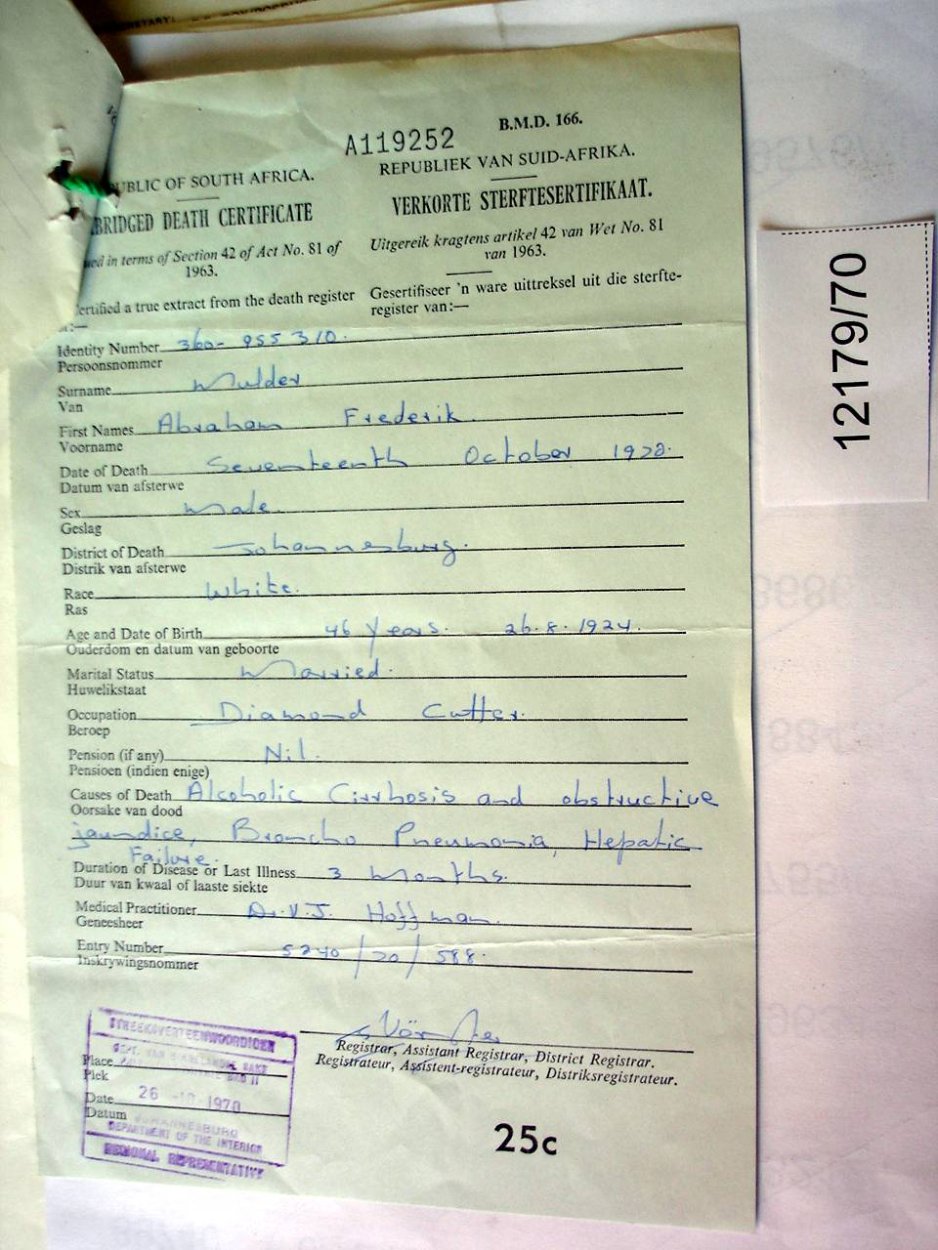 A119252
B.M.D. 166.
UBLIC OF SOUTH AFRICA.
REPUBLIEK VAN SUID-AFRIKA.
BRIDGED DEATH CERTIFICATE
VERKORTE STERFTESERTIFIKAAT.
ued in terms of Section 42 of Act No. 81 of
1963.
Uitgereik kragtens artikel 42 van Wet No. 81
van 1963.
ertified a true extract from the death register
of:—
Gesertifiseer 'n ware uittreksel uit die sterfte-
register van:—
Identity Number 360-955310.
Persoonsnommer
Surname Mulder
Van
First Names Abraham Frederik.
Voorname
Date of Death Seventeenth October 1970.
Datum van afsterwe
Sex Male.
Geslag
District of Death Johannesburg.
Distrik van afsterwe
Race White.
Ras
Age and Date of Birth 46 Years. 26.8.1924.
Ouderdom en datum van geboorte
Marital Status Married.
Huwelikstaat
Occupation Diamond Cutter.
Beroep
Pension (if any) Nil.
Pensioen (indien enige)
Causes of Death Alcoholic Cirrhosis and obstructive
Oorsake van dood
jaundice, Broncho Pneumonia, Hepatic
Failure.
Duration of Disease or Last Illness 3 Months.
Duur van kwaal of laaste siekte
Medical Practitioner Dr. V.J. Hoffman.
Geneesheer
Entry Number 5240/70/588.
Inskrywingsnommer
Registrar, Assistant Registrar, District Registrar.
Registrateur, Assistent-registrateur, Distriksregistrateur.
STREEKSVERTEENWOORDIGER
Place
Plek
Date 26 -10- 1970
Datum JOHANNESBURG
DEPARTMENT OF THE INTERIOR
REGIONAL REPRESENTATIVE
25c
12179/70